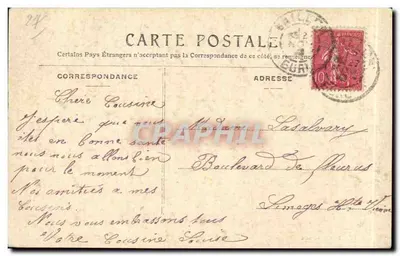 CARTE POSTALE
Certains Pays Étrangers n'acceptent pas la Correspondance de ce côté,
CORRESPONDANCE
ADRESSE
Chere Cousine
J'espere que vous
etes en bonne santé
nous nous allons bien
pour le moment
Nos amitiées a mes
Cousins
Nous vous embrassons tous
Votre Cousine Louise
Madame Lasalvary
Boulevard des
Limoges Hte Vienne
10
CPAPHIL